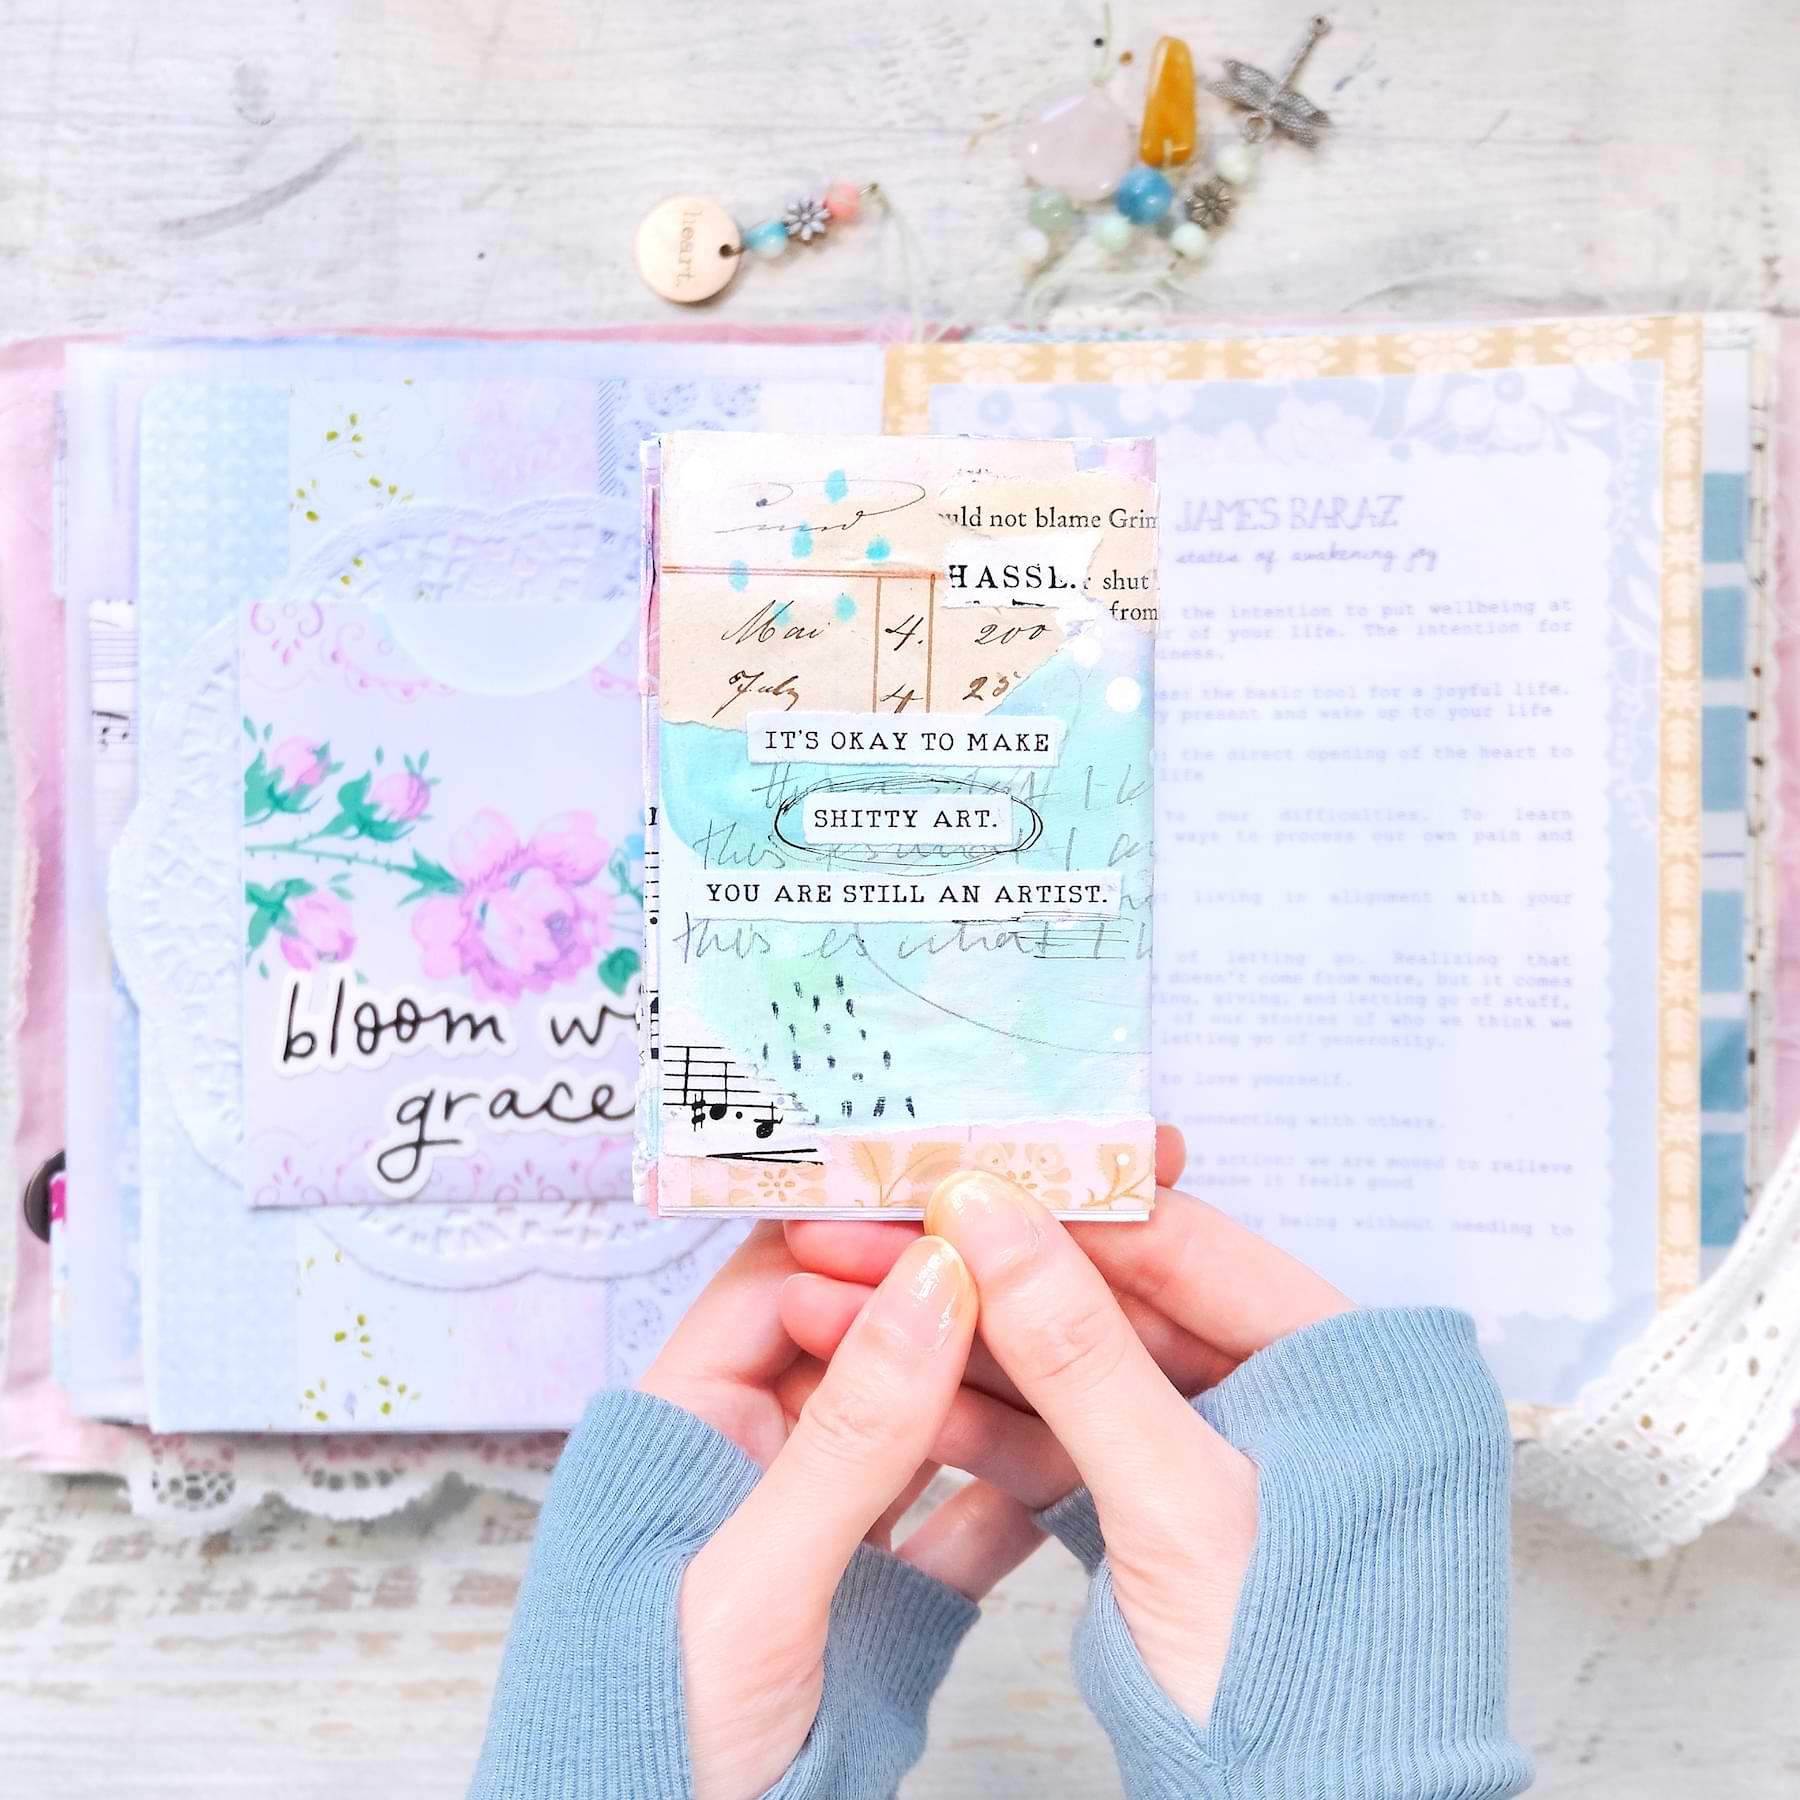 heart.
uld not blame Grim
HASSL.
shut
from
Mai 4. 200
July 4 25
IT'S OKAY TO MAKE
SHITTY ART.
YOU ARE STILL AN ARTIST.
this is what I
bloom w
grace
JAMES BARAZ
states of awakening joy
: the intention to put wellbeing at
of your life. The intention for
iness.
: the basic tool for a joyful life.
present and wake up to your life
: the direct opening of the heart to
life
to our difficulties. To learn
ways to process our own pain and
living in alignment with your
of letting go. Realizing that
doesn't come from more, but it comes
ing, giving, and letting go of stuff,
of our stories of who we think we
letting go of generosity.
to love yourself.
of connecting with others.
action: we are moved to relieve
because it feels good
being without needing to